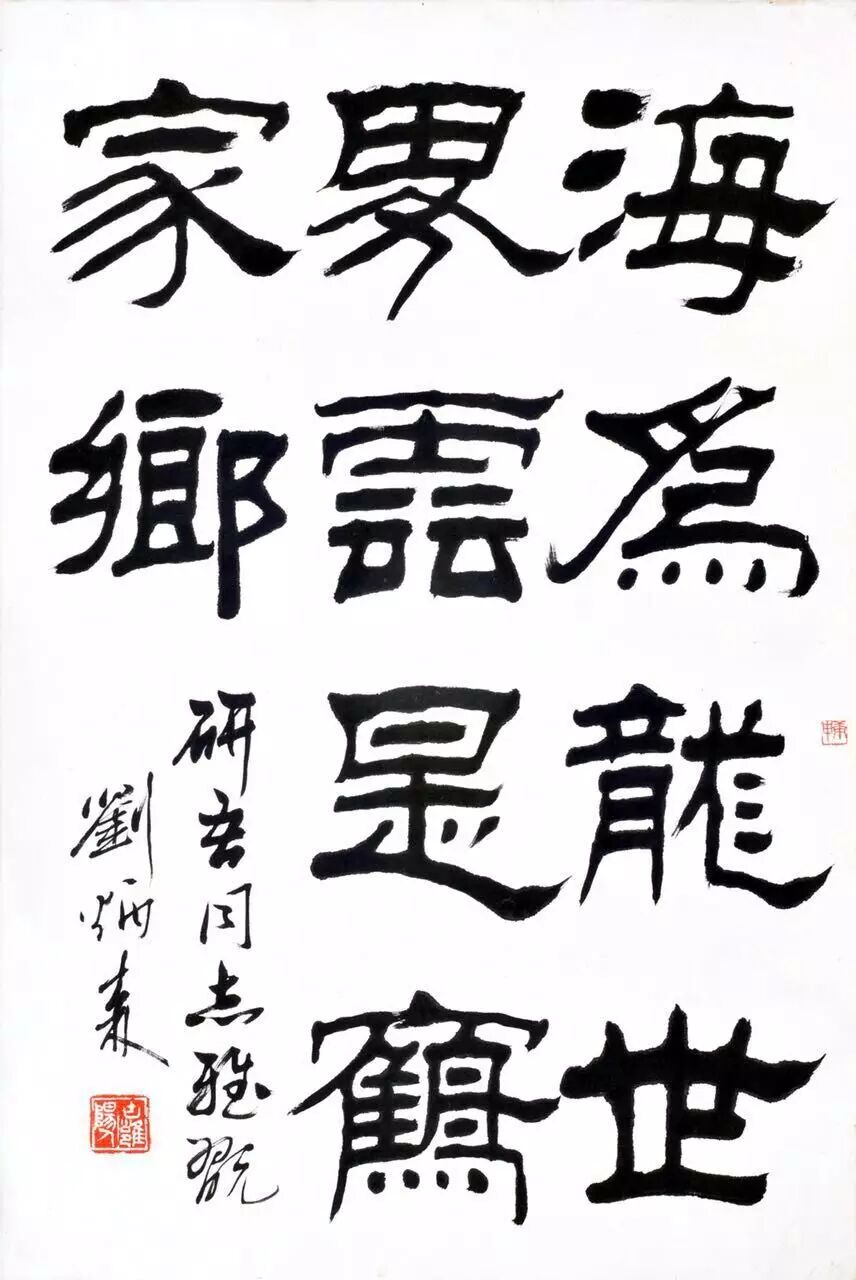 海為龍世
界雲是鶴
家鄉
研吾同志雅翫
劉炳森